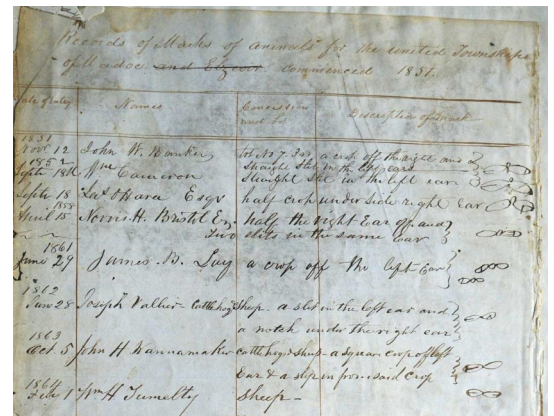 Records of Marks of animals for the united Townships
of Madoc and Elzevir. Commenced 1851.
Date of entry Names Concession and Lot Description of Mark
1851
Novr 12 John W. Lot No 7. 3 a crop off the right and
straight slit in the left ear
1852
Septr 18th Wm Cameron straight slit in the left ear
Septr 18 Jas OHara Esqr half crop under side right Ear
1858
April 15 Norris H. Bristol Esq. half the right Ear off and
two slits in the same Ear
1861
June 29 James B. a crop off the left Ear
1862
28 Joseph Vallier Cattle hogs Sheep. a slit in the left ear and
a notch under the right ear
1863
Oct. 5 John H Wannamaker cattle hogs & sheep - a square crop off left
Ear & a slip in from said crop
1864
July 1 Wm H Tumelty Sheep -